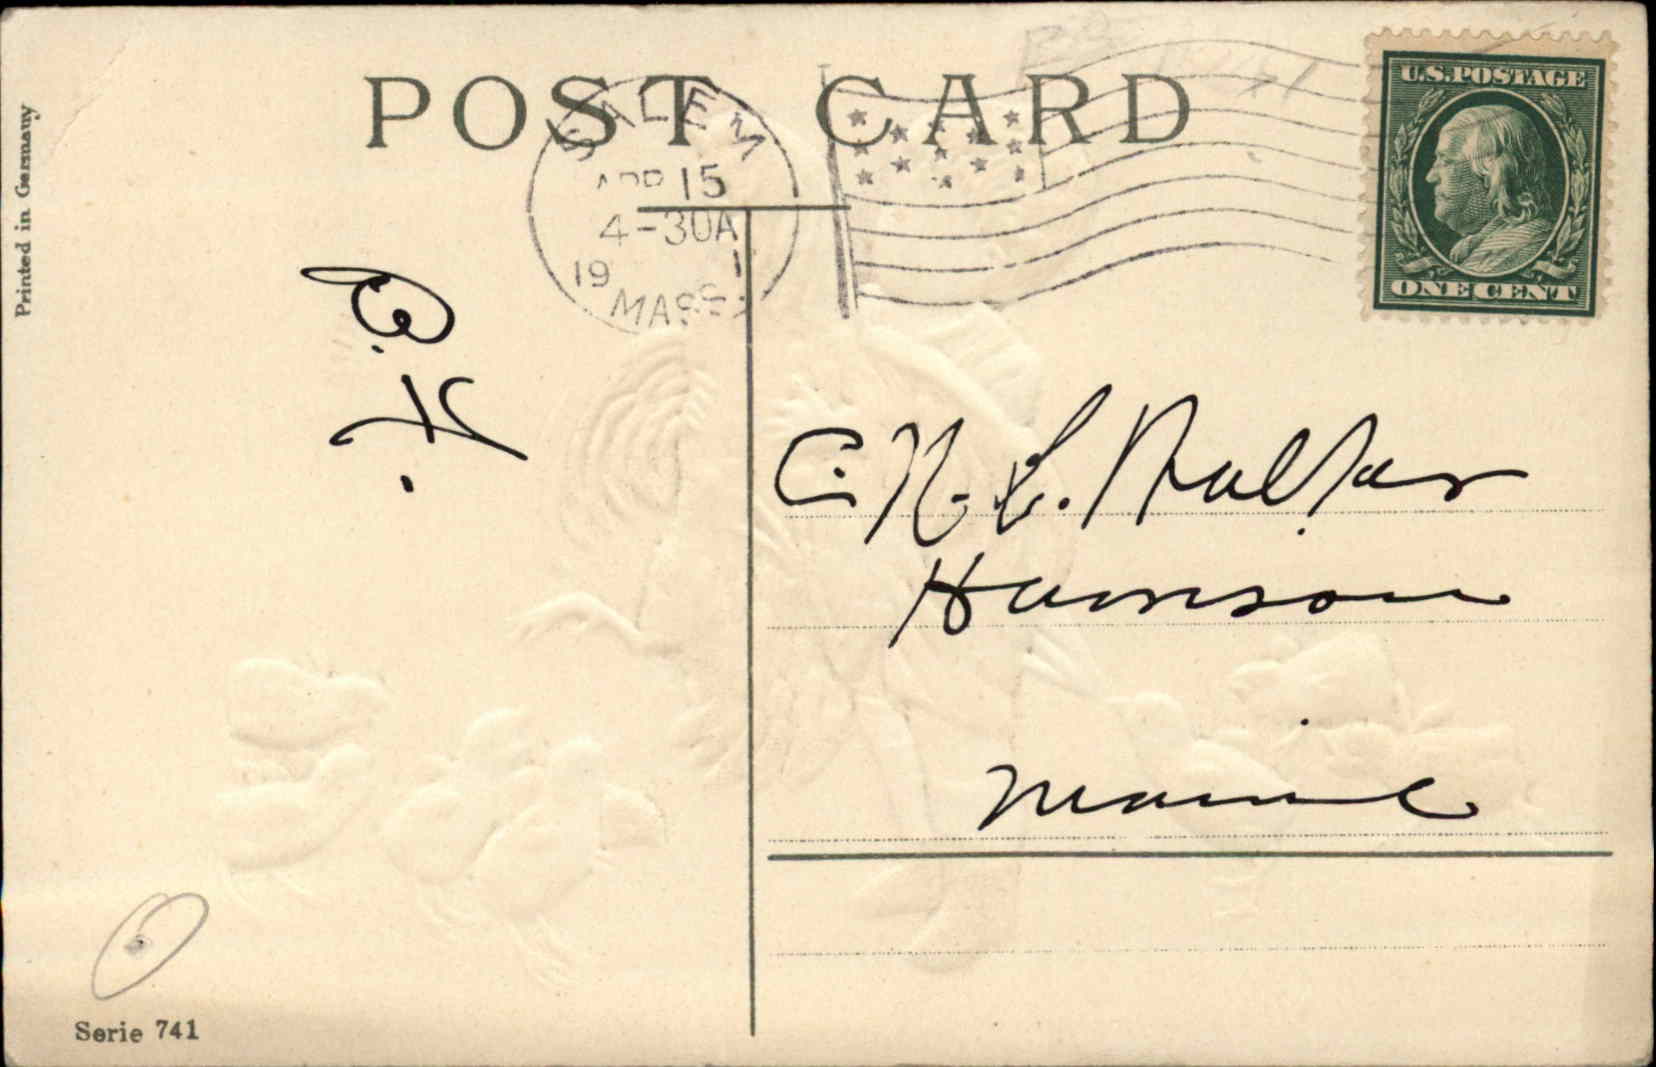 POST CARD
SALEM
APR 15
4-30A
19
MASS.
U.S. POSTAGE
ONE CENT
Printed in Germany
C. N. L.
Harrison
Maine
Serie 741